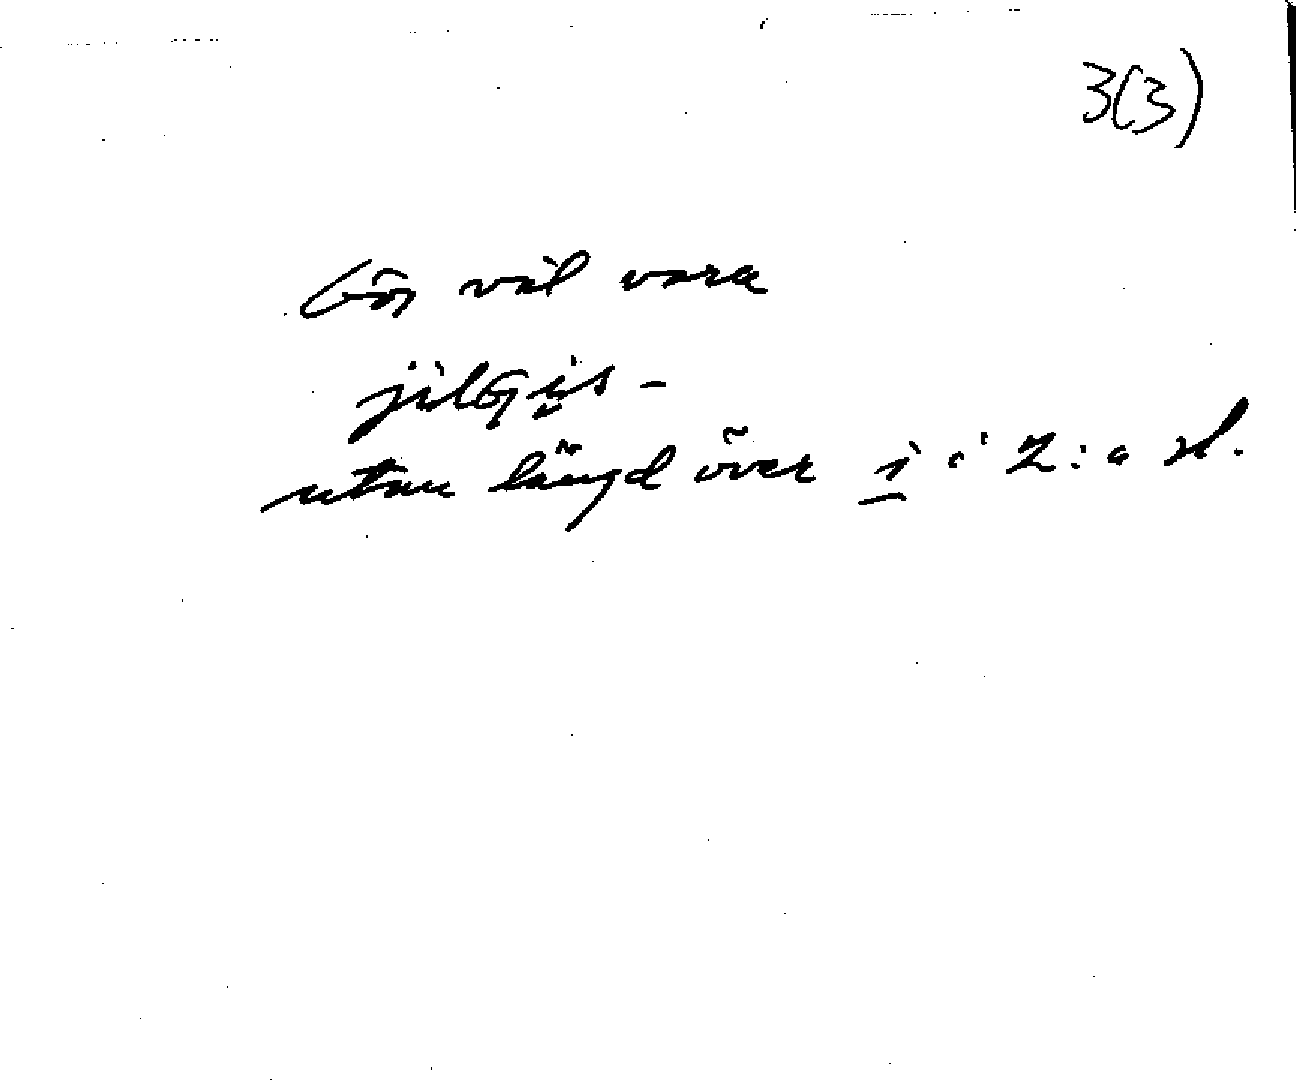 3(3)
bör väl vara
jilGis -
utan längd över i i 2:a st.